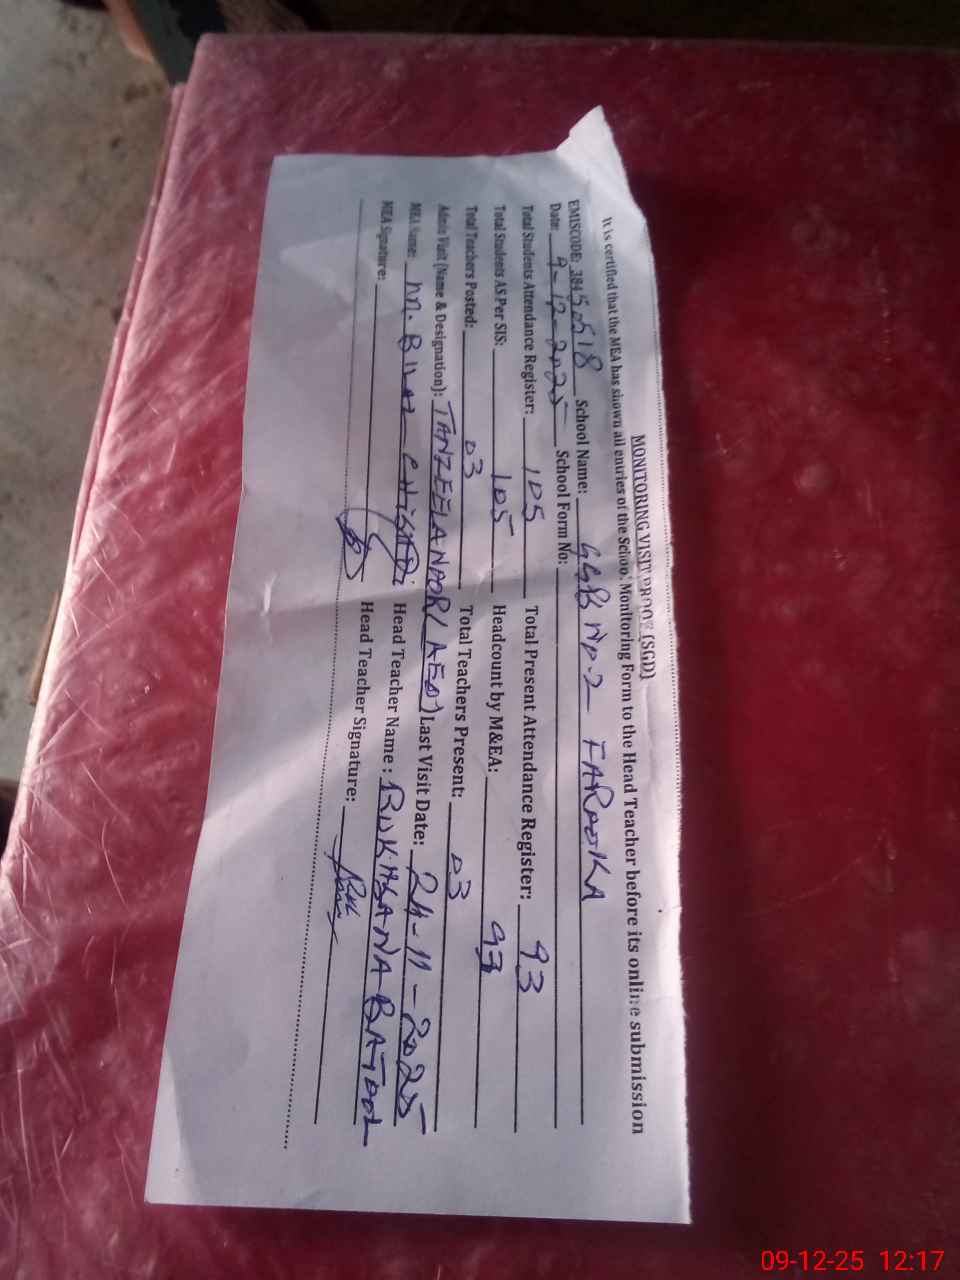 MONITORING VISIT PROOF (SGD)
It is certified that the MEA has shown all entries of the School Monitoring Form to the Head Teacher before its online submission
EMISCODE: 3845518 School Name: GGPS No.2 FAROOKA
Date: 9-12-2025 School Form No:
Total Students Attendance Register: 105 Total Present Attendance Register: 93
Total Students AS Per SIS: 105 Headcount by M&EA: 93
Total Teachers Posted: 03 Total Teachers Present: 03
Admin Visit (Name & Designation): TANZEELA NOOR (AEO) Last Visit Date: 24-11-2025
MEA Name: M. CHISHTI Head Teacher Name : RUKHSANA BATOOL
MEA Signature: Head Teacher Signature:
09-12-25 12:17